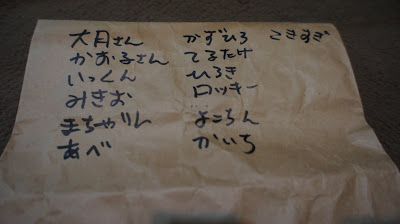 大月さん かずひろ こきすぎ
かお子さん てるたけ
いっくん ひろき
みきお ロッキー
まちゃりん よこちん
あべ かいち